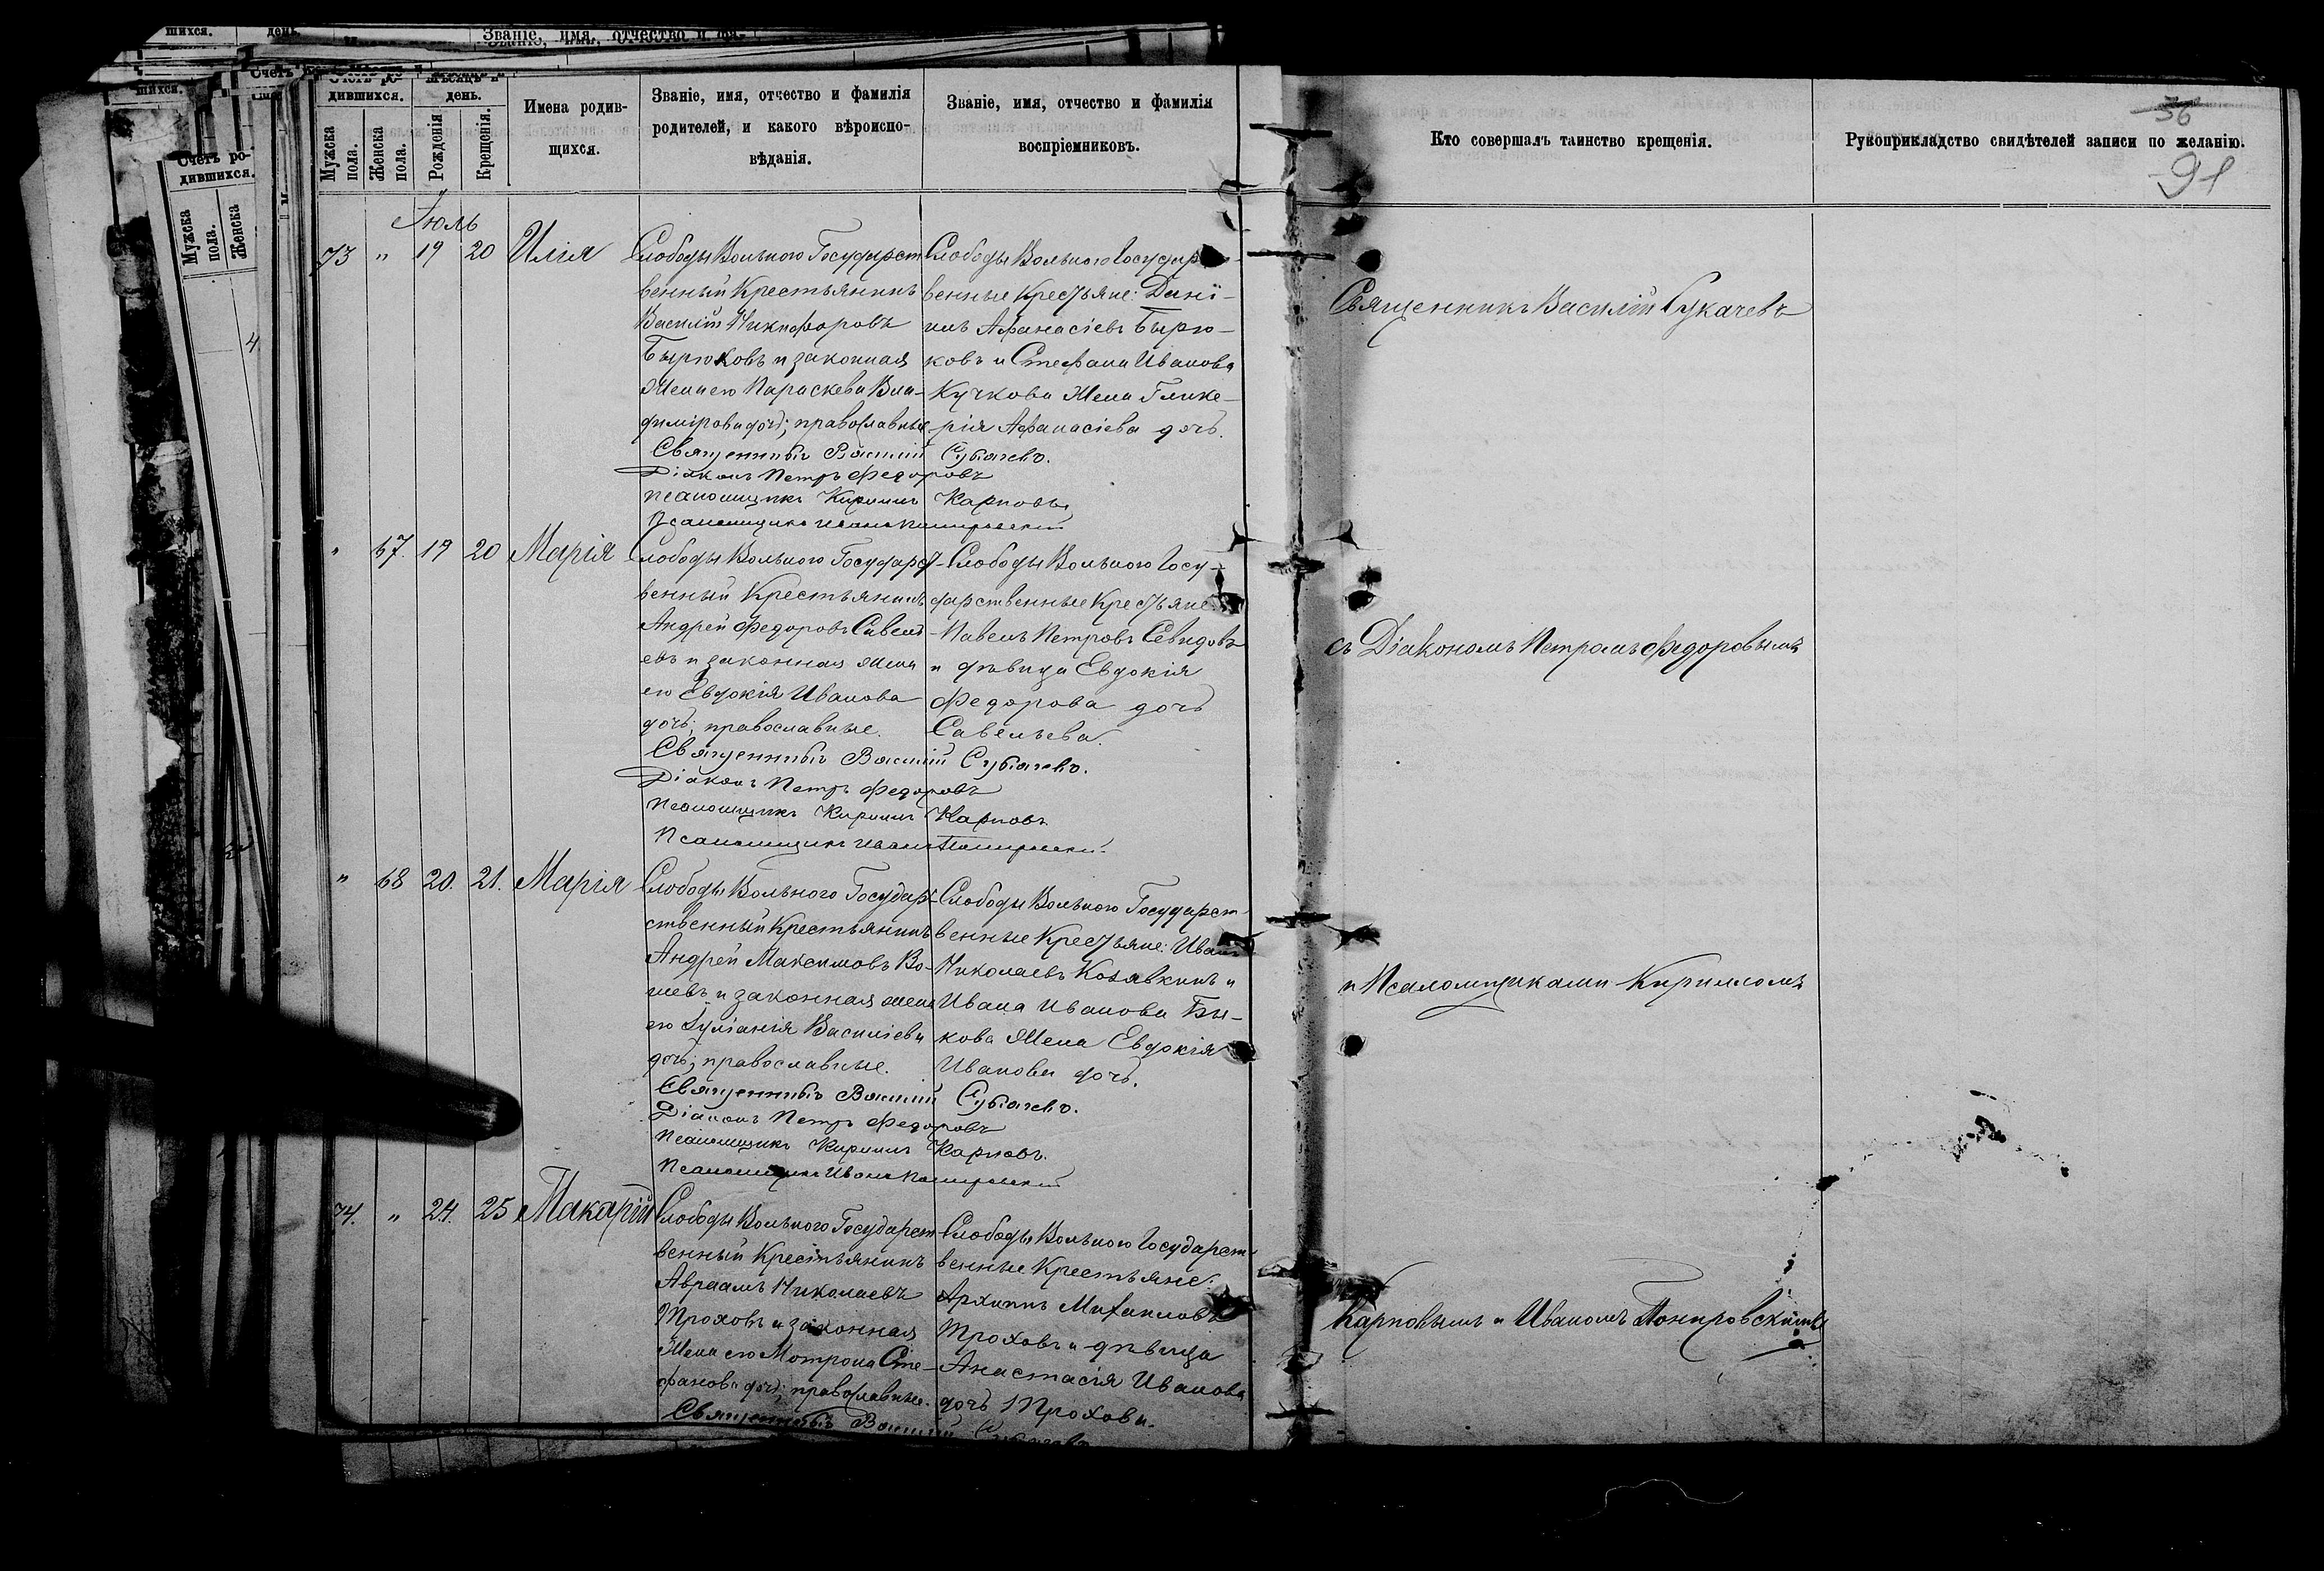 шихся.
день.
Званіе, имя, отчество и фа-
Счетъ ро-
дившихся.
Мужеска пола.
Женска
4
Счетъ ро-
дившихся.
Мѣсяцъ и
день.
Мужеска пола.
Женска пола.
Рожденія
Крещенія.
Имена родив-
щихся.
Званіе, имя, отчество и фамилія
родителей, и какого вѣроиспо-
вѣданія.
Званіе, имя, отчество и фамилія
воспріемниковъ.
Кто совершалъ таинство крещенія.
Рукоприкладство свидѣтелей записи по желанію.
36
91
Іюль
73 " 19 20 Илія
Слободы Вольного Государст
венный Крестьянинъ
Василій Никифоровъ
Бирюковъ и законная
жена его Параскева Вла-
димірова дочь; православные
Слободы Вольного Государ-
венные Крестьяне: Дані-
илъ Афанасіевъ Бирю-
ковъ и Стефана Иванова
Кучкова жена Глике-
рія Афанасіева дочь.
Священникъ Василій Сукачевъ.
Діаконъ Петръ Федоровъ
Псаломщикъ Кириллъ Карповъ
Псаломщикъ Иванъ Понировскій
" 67. 19 20 Марія
Слободы Вольного Государст-
венный Крестьянинъ
Андрей Федоровъ Савель
евъ и законная жена
его Евдокія Иванова
дочь; православные.
Слободы Вольного Госу-
дарственные Крестьяне:
Павелъ Петровъ Севидовъ
и дѣвица Евдокія
Федорова дочь
Савельева.
Священникъ Василій Сукачевъ.
Діаконъ Петръ Федоровъ
Псаломщикъ Кириллъ Карповъ
Псаломщикъ Иванъ Понировскій
" 68 20. 21. Марія
Слободы Вольного Государ-
ственный Крестьянинъ
Андрей Максимовъ Во-
евъ и законная жена
его Іуліанія Василіева
дочь; православные.
Слободы Вольного Государст-
венные Крестьяне: Иванъ
Николаевъ Козявкинъ и
Ивана Иванова Бы-
кова жена Евдокія
Иванова дочь.
Священникъ Василій Сукачевъ.
Діаконъ Петръ Федоровъ
Псаломщикъ Кириллъ Карповъ.
Псаломщикъ Иванъ Понировскій
74. " 24. 25 Макарій
Слободы Вольного Государст-
венный Крестьянинъ
Авраамъ Николаевъ
Проховъ и законная
жена его Мотрона Сте-
фанова дочь; православные.
Слободы Вольного Государст-
венные Крестьяне:
Архиппъ Михаиловъ
Проховъ и дѣвица
Анастасія Иванова
дочь Прохова.
Священникъ Василій Сукачевъ
Священникъ Василій Сукачевъ
съ Діакономъ Петромъ Федоровымъ
и Псаломщиками Кирилломъ
Карповымъ и Иваномъ Понировскимъ